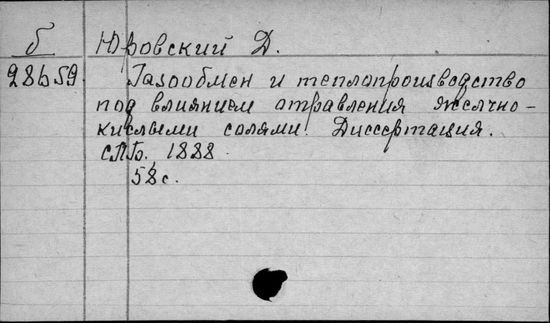 б Юровский Д.
28659. Газообмен и теплопроизводство
под влиянием отравления желчно-
кислыми солями. Диссертация.
СПБ, 1888
58 с.